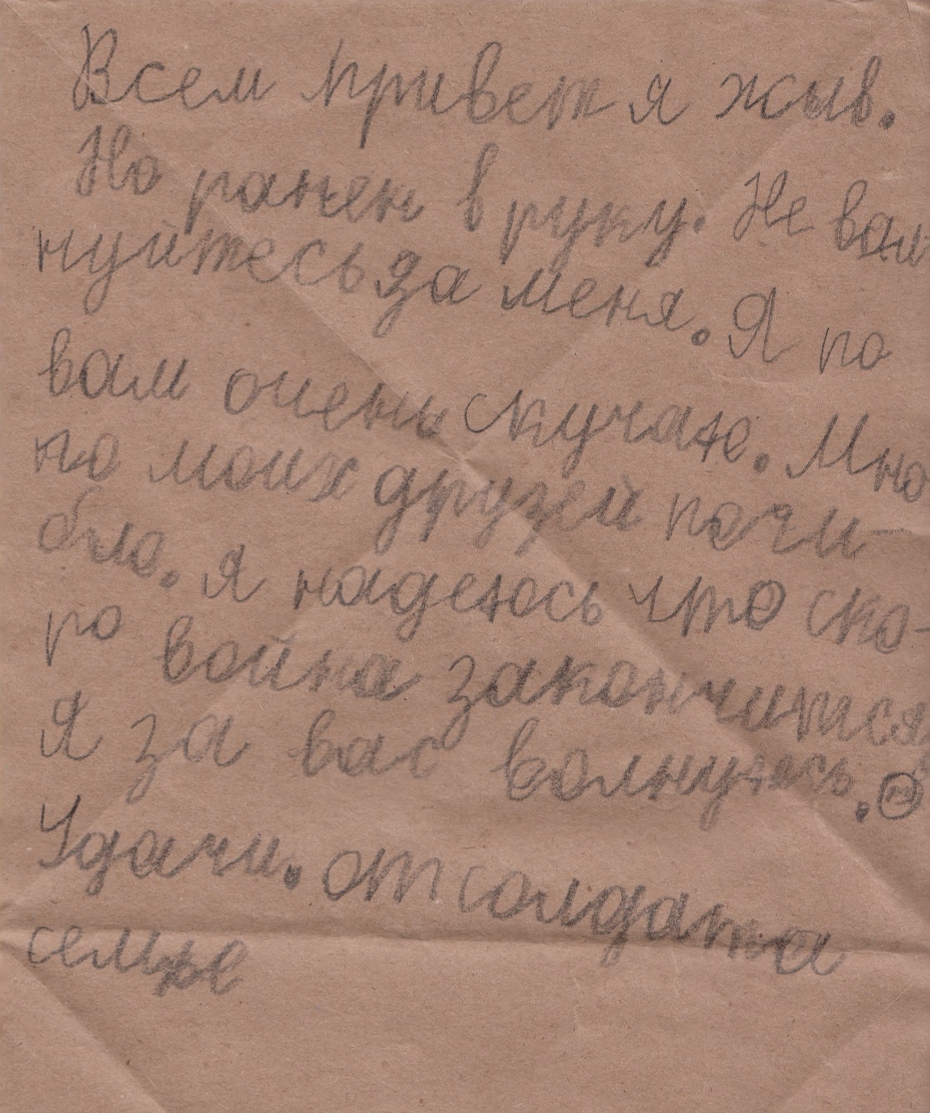 Всем привет я жыв.
Но ранен в руку. Не вам
нуйтесь за меня. Я по
вам очень скучаю. Мно
го моих друзей поги-
бло. Я надеюсь что ско-
ро война закончится
Я за вас волнуюсь.
Удачи. От солдата
семье